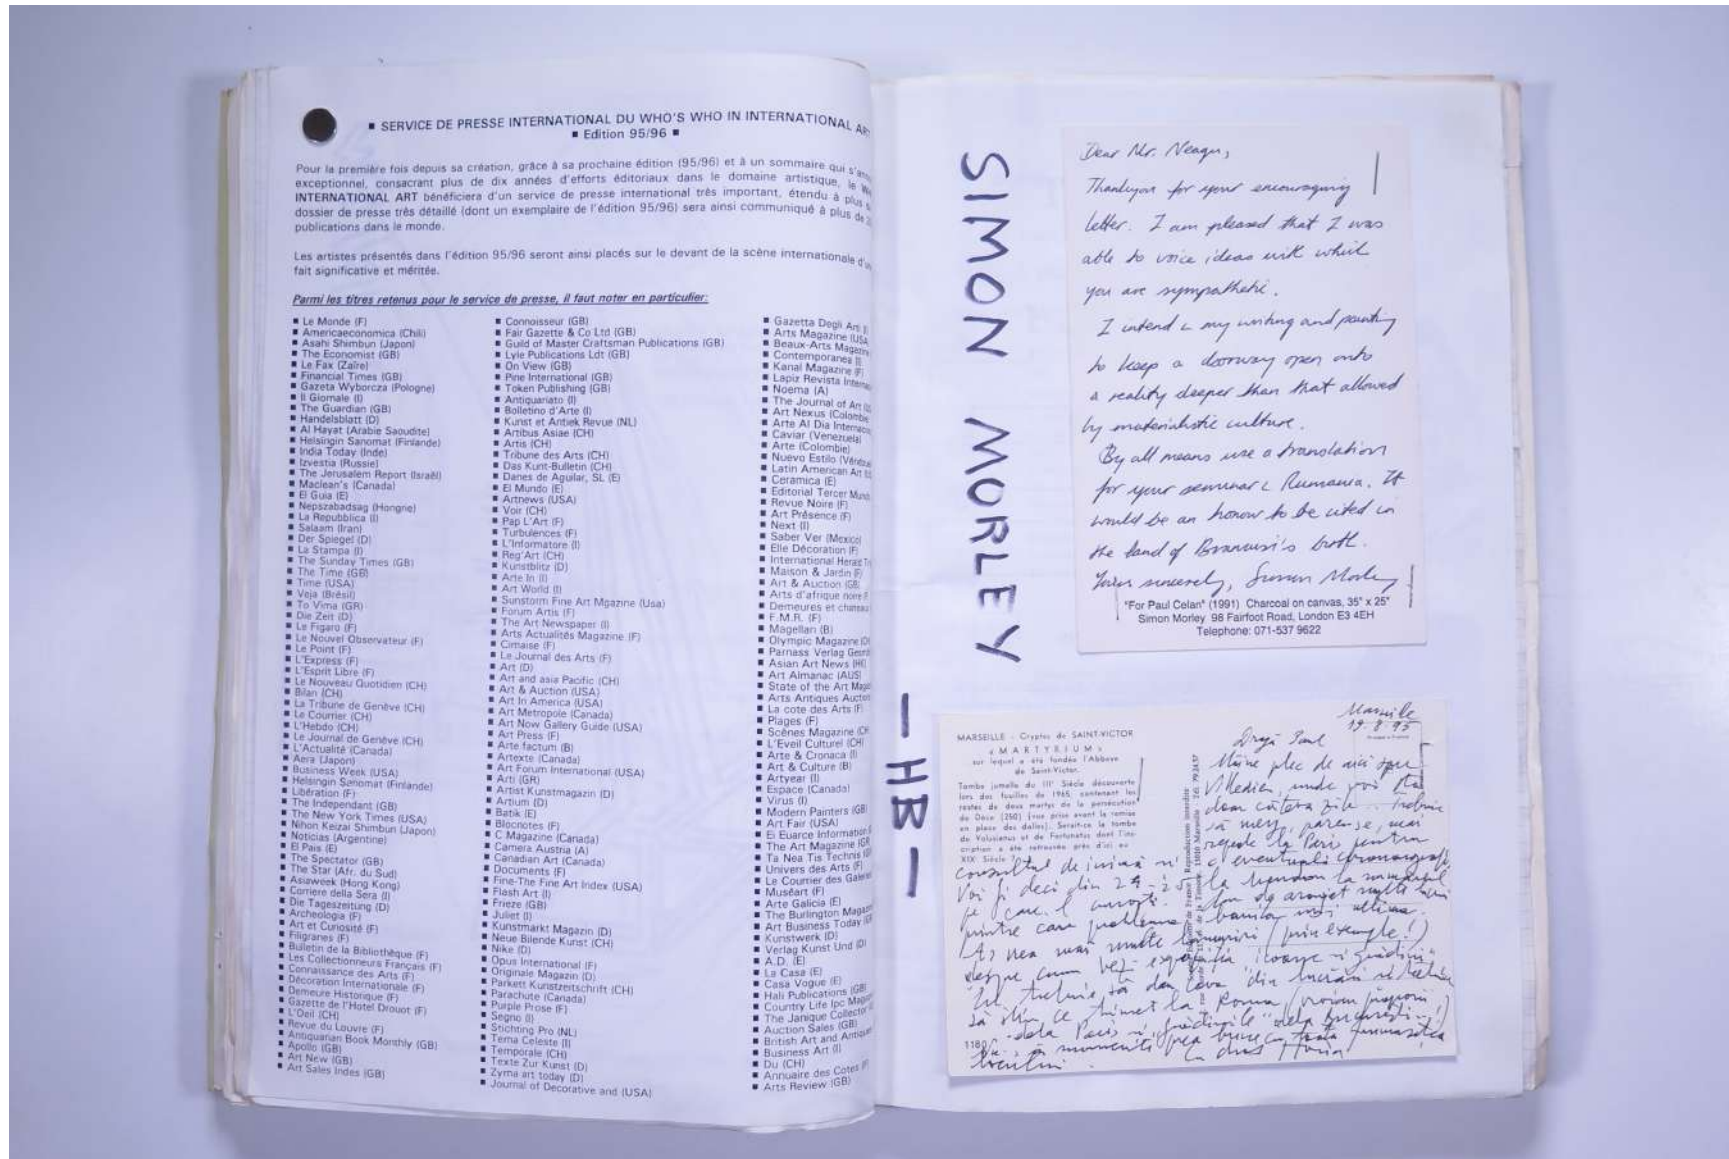 ■ SERVICE DE PRESSE INTERNATIONAL DU WHO'S WHO IN INTERNATIONAL ART
■ Edition 95/96 ■
Pour la première fois depuis sa création, grâce à sa prochaine édition (95/96) et à un sommaire qui
exceptionnel, consacrant plus de dix années d'efforts éditoriaux dans le domaine artistique, le
INTERNATIONAL ART bénéficiera d'un service de presse international très important, étendu à plus
dossier de presse très détaillé (dont un exemplaire de l'édition 95/96) sera ainsi communiqué à plus de
publications dans le monde.
Les artistes présentés dans l'édition 95/96 seront ainsi placés sur le devant de la scène internationale
fait significative et méritée.
Parmi les titres retenus pour le service de presse, il faut noter en particulier:
■ Le Monde (F)
■ Americaeconomica (Chili)
■ Asahi Shimbun (Japon)
■ The Economist (GB)
■ Le Fax (Zaïre)
■ Financial Times (GB)
■ Gazeta Wyborcza (Pologne)
■ Il Giornale (I)
■ The Guardian (GB)
■ Handelsblatt (D)
■ Al Hayat (Arabie Saoudite)
■ Helsingin Sanomat (Finlande)
■ India Today (Inde)
■ Izvestia (Russie)
■ The Jerusalem Report (Israël)
■ Maclean's (Canada)
■ El Guia (E)
■ Nepszabadsag (Hongrie)
■ La Repubblica (I)
■ Salaam (Iran)
■ Der Spiegel (D)
■ La Stampa (I)
■ The Sunday Times (GB)
■ The Time (GB)
■ Time (USA)
■ Veja (Brésil)
■ To Vima (GR)
■ Die Zeit (D)
■ Le Figaro (F)
■ Le Nouvel Observateur (F)
■ Le Point (F)
■ L'Express (F)
■ L'Esprit Libre (F)
■ Le Nouveau Quotidien (CH)
■ Bilan (CH)
■ La Tribune de Genève (CH)
■ Le Courrier (CH)
■ L'Hebdo (CH)
■ Le Journal de Genève (CH)
■ L'Actualité (Canada)
■ Aera (Japon)
■ Business Week (USA)
■ Helsingin Sanomat (Finlande)
■ Libération (F)
■ The Independant (GB)
■ The New York Times (USA)
■ Nihon Keizai Shimbun (Japon)
■ Noticias (Argentine)
■ El Pais (E)
■ The Spectator (GB)
■ The Star (Afr. du Sud)
■ Asiaweek (Hong Kong)
■ Corriere della Sera (I)
■ Die Tageszeitung (D)
■ Archeologia (F)
■ Art et Curiosité (F)
■ Filigranes (F)
■ Bulletin de la Bibliothèque (F)
■ Les Collectionneurs Français (F)
■ Connaissance des Arts (F)
■ Décoration Internationale (F)
■ Demeure Historique (F)
■ Gazette de l'Hotel Drouot (F)
■ L'Oeil (CH)
■ Revue du Louvre (F)
■ Antiquarian Book Monthly (GB)
■ Apollo (GB)
■ Art New (GB)
■ Art Sales Indes (GB)
■ Connoisseur (GB)
■ Fair Gazette & Co Ltd (GB)
■ Guild of Master Craftsman Publications (GB)
■ Lyle Publications Ldt (GB)
■ On View (GB)
■ Pine International (GB)
■ Token Publishing (GB)
■ Antiquariato (I)
■ Bolletino d'Arte (I)
■ Kunst et Antiek Revue (NL)
■ Artibus Asiae (CH)
■ Artis (CH)
■ Tribune des Arts (CH)
■ Das Kunt-Bulletin (CH)
■ Danes de Aguilar, SL (E)
■ El Mundo (E)
■ Artnews (USA)
■ Voir (CH)
■ Pap L'Art (F)
■ Turbulences (F)
■ L'Informatore (I)
■ Reg'Art (CH)
■ Kunstblitz (D)
■ Arte In (I)
■ Art World (I)
■ Sunstorm Fine Art Mgazine (Usa)
■ Forum Artis (F)
■ The Art Newspaper (I)
■ Arts Actualités Magazine (F)
■ Cimaise (F)
■ Le Journal des Arts (F)
■ Art (D)
■ Art and asia Pacific (CH)
■ Art & Auction (USA)
■ Art In America (USA)
■ Art Metropole (Canada)
■ Art Now Gallery Guide (USA)
■ Art Press (F)
■ Arte factum (B)
■ Artexte (Canada)
■ Art Forum International (USA)
■ Arti (GR)
■ Artist Kunstmagazin (D)
■ Artium (D)
■ Batik (E)
■ Blocnotes (F)
■ C Magazine (Canada)
■ Camera Austria (A)
■ Canadian Art (Canada)
■ Documents (F)
■ Fine-The Fine Art Index (USA)
■ Flash Art (I)
■ Frieze (GB)
■ Juliet (I)
■ Kunstmarkt Magazin (D)
■ Neue Bilende Kunst (CH)
■ Nike (D)
■ Opus International (F)
■ Originale Magazin (D)
■ Parkett Kunstzeitschrift (CH)
■ Parachute (Canada)
■ Purple Prose (F)
■ Segno (I)
■ Stichting Pro (NL)
■ Tema Celeste (I)
■ Temporale (CH)
■ Texte Zur Kunst (D)
■ Zyma art today (D)
■ Journal of Decorative and (USA)
■ Gazetta Degli Arti
■ Arts Magazine (USA
■ Beaux-Arts Magazine
■ Contemporanea (I)
■ Kanal Magazine (F)
■ Lapiz Revista
■ Noema (A)
■ The Journal of Art
■ Art Nexus (Colombie
■ Arte Al Dia
■ Caviar (Venezuela)
■ Arte (Colombie)
■ Nuevo Estilo
■ Latin American Art
■ Ceramica (E)
■ Editorial Tercer
■ Revue Noire (F)
■ Art Présence (F)
■ Next (I)
■ Saber Ver (Mexico)
■ Elle Décoration (F)
■ International
■ Maison & Jardin (F)
■ Art & Auction (GB)
■ Arts d'afrique noire
■ Demeures et
■ F.M.R. (F)
■ Magellan (B)
■ Olympic Magazine
■ Parnass Verlag
■ Asian Art News
■ Art Almanac (AUS)
■ State of the Art
■ Arts Antiques
■ La cote des Arts (F)
■ Plages (F)
■ Scènes Magazine
■ L'Eveil Culturel (CH)
■ Arte & Cronaca (I)
■ Art & Culture (B)
■ Artyear (I)
■ Espace (Canada)
■ Virus (I)
■ Modern Painters (GB)
■ Art Fair (USA)
■ Ei Euarce Information
■ The Art Magazine
■ Ta Nea Tis Technis
■ Univers des Arts (F)
■ Le Courrier des
■ Muséart (F)
■ Arte Galicia (E)
■ The Burlington
■ Art Business Today
■ Kunstwerk (D)
■ Verlag Kunst Und (D)
■ A.D. (E)
■ La Casa (E)
■ Casa Vogue (E)
■ Hali Publications (GB)
■ Country Life Ipc
■ The Janique Collector
■ Auction Sales (GB)
■ British Art and
■ Business Art (I)
■ Du (CH)
■ Annuaire des Cotes
■ Arts Review (GB)
SIMON MORLEY
-HB-
Dear Mr. Neagu,
Thankyou for your encouraging
letter. I am pleased that I was
able to voice ideas with which
you are sympathetic.
I intend in my writing and painting
to keep a doorway open onto
a reality deeper than that allowed
by materialistic culture.
By all means use a translation
for your seminar in Rumania. It
would be an honour to be cited in
the land of Brancusi's birth.
Yours sincerely, Simon Morley
"For Paul Celan" (1991) Charcoal on canvas, 35" x 25"
Simon Morley 98 Fairfoot Road, London E3 4EH
Telephone: 071-537 9622
MARSEILLE - Cryptes de SAINT-VICTOR
«MARTYRIUM»
sur lequel a été fondée l'Abbaye
de Saint-Victor.
Tombe jumelle du IIIe Siècle découverte
lors des fouilles de 1965, contenant les
restes de deux martyrs de la persécution
de Dèce (250) (vue prise avant la remise
en place des dalles). Serait-ce la tombe
de Volusianus et de Fortunatus dont l'ins-
cription a été retrouvée près d'ici au
XIXe Siècle ?
Marseille
19.8.95
Dragă Paul
Mâine plec de aici spre
unde voi sta
doar câteva zile
să merg, mai
repede la Paris pentru
1180